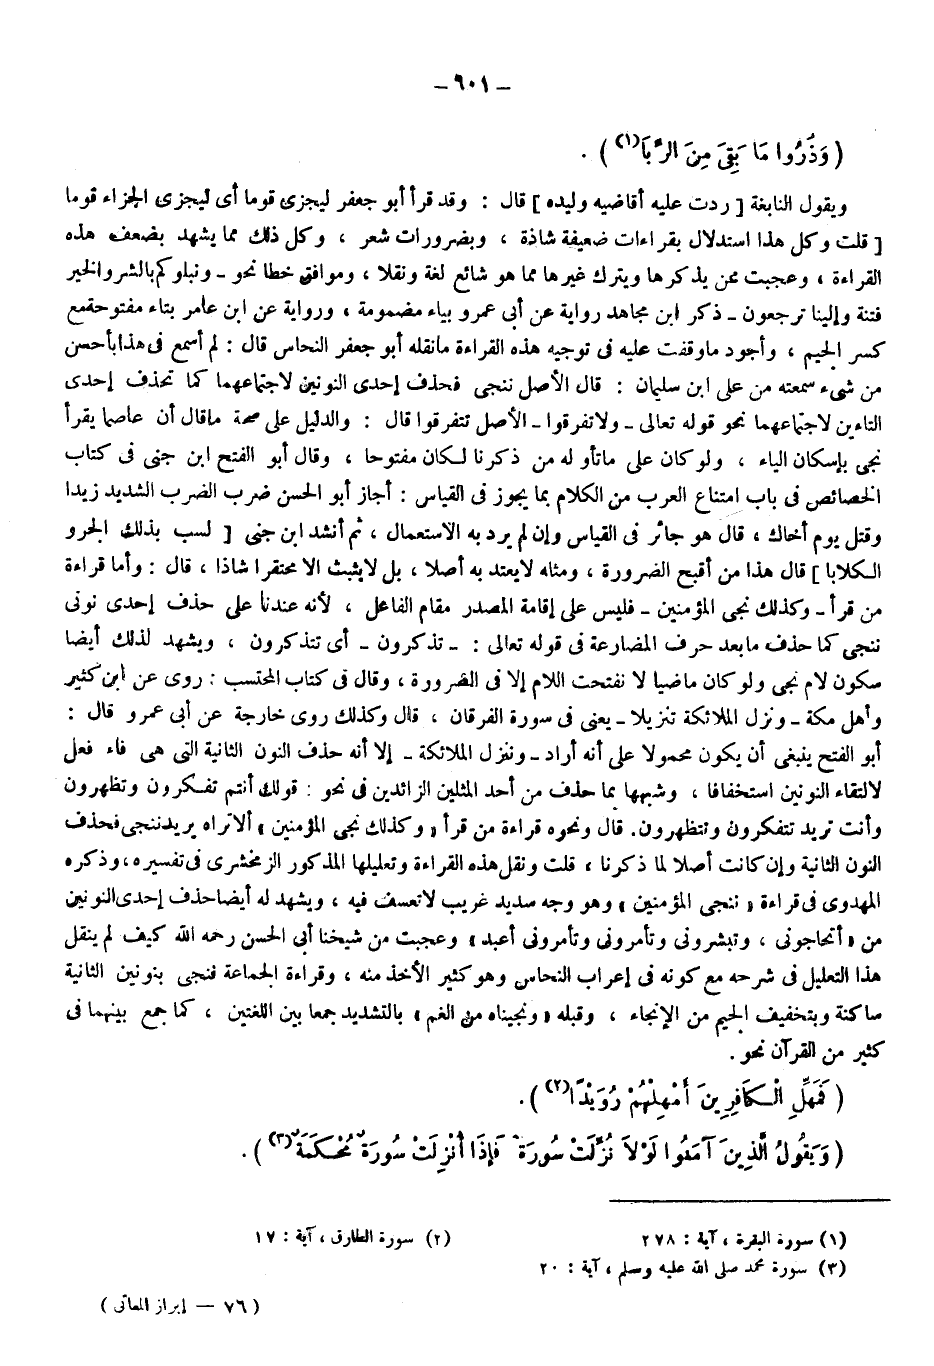 - ٦٠١ -
( وَذَرُوا مَا بَقِىَ مِنَ الرِّبَا(١) ) .
ويقول النابغة [ ردت عليه أقاضيه وليده ] قال : وقد قرأ أبو جعفر ليجزى قوما أى ليجزى الجزاء قوما
[ قلت وكل هذا استدلال بقراءات ضعيفة شاذة ، وبضرورات شعر ، وكل ذلك مما يشهد بضعف هذه
القراءة ، وعجبت ممن يذكرها ويترك غيرها مما هو شائع لغة ونقلا ، وموافق خطا نحو - ونبلوكم بالشر والخير
فتنة وإلينا ترجعون - ذكر ابن مجاهد رواية عن أبى عمرو بياء مضمومة ، ورواية عن ابن عامر بتاء مفتوحة مع
كسر الجيم ، وأجود ماوقفت عليه فى توجيه هذه القراءة مانقله أبو جعفر النحاس قال : لم أسمع فى هذا بأحسن
من شىء سمعته من على ابن سليمان : قال الأصل ننجى فحذف إحدى النونين لاجتماعهما كما تحذف إحدى
التاءين لاجتماعهما نحو قوله تعالى - ولاتفرقوا - الأصل تتفرقوا قال : والدليل على صحة ماقال أن عاصما يقرأ
نجى بإسكان الياء ، ولو كان على ماتأوله من ذكرنا لكان مفتوحا ، وقال أبو الفتح ابن جنى فى كتاب
الخصائص فى باب امتناع العرب من الكلام بما يجوز فى القياس : أجاز أبو الحسن ضرب الضرب الشديد زيدا
وقتل يوم أخاك ، قال هو جائز فى القياس وإن لم يرد به الاستعمال ، ثم أنشد ابن جنى [ لسب بذلك الجرو
الكلابا ] قال هذا من أقبح الضرورة ، ومثله لايعتد به أصلا ، بل لايثبت الا محتقرا شاذا ، قال : وأما قراءة
من قرأ - وكذلك نجى المؤمنين - فليس على إقامة المصدر مقام الفاعل ، لأنه عندنا على حذف إحدى نونى
ننجى كما حذف مابعد حرف المضارعة فى قوله تعالى : - تذكرون - أى تتذكرون ، ويشهد لذلك أيضا
سكون لام نجى ولو كان ماضيا لا نفتحت اللام إلا فى الضرورة ، وقال فى كتاب المحتسب : روى عن ابن كثير
وأهل مكة - ونزل الملائكة تنزيلا - يعنى فى سورة الفرقان ، قال وكذلك روى خارجة عن أبى عمرو قال :
أبو الفتح ينبغى أن يكون محمولا على أنه أراد - وننزل الملائكة - إلا أنه حذف النون الثانية التى هى فاء فعل
لالتقاء النونين استخفافا ، وشبهها بما حذف من أحد المثلين الزائدين فى نحو : قولك أنتم تفكرون وتظهرون
وأنت تريد تتفكرون وتتظهرون. قال ونحوه قراءة من قرأ « وكذلك نجى المؤمنين » ألاتراه يريد ننجى فحذف
النون الثانية وإن كانت أصلا لما ذكرنا ، قلت ونقل هذه القراءة وتعليلها المذكور الزمخشرى فى تفسيره ، وذكره
المهدوى فى قراءة « ننجى المؤمنين » وهو وجه سديد غريب لاتعسف فيه ، ويشهد له أيضا حذف إحدى النونين
من « أتحاجونى ، وتبشرونى وتأمرونى وتأمرونى أعبد » وعجبت من شيخنا أبى الحسن رحمه الله كيف لم ينقل
هذا التعليل فى شرحه مع كونه فى إعراب النحاس وهو كثير الأخذ منه ، وقراءة الجماعة فنجى بنونين الثانية
ساكنة وبتخفيف الجيم من الإنجاء ، وقبله « ونجيناه من الغم » بالتشديد جمعا بين اللغتين ، كما جمع بينهما فى
كثير من القرآن نحو .
( فَمَهِّلِ الْكَافِرِينَ أَمْهِلْهُمْ رُوَيْدًا(٢) ) .
( وَيَقُولُ الَّذِينَ آمَنُوا لَوْلاَ نُزِّلَتْ سُورَةٌ فَإِذَا أُنْزِلَتْ سُورَةٌ مُحْكَمَةٌ(٣) ) .
(١) سورة البقرة ، آية : ٢٧٨ (٢) سورة الطارق ، آية : ١٧
(٣) سورة محمد صلى الله عليه وسلم ، آية : ٢٠
( ٧٦ - إبراز المعانى )